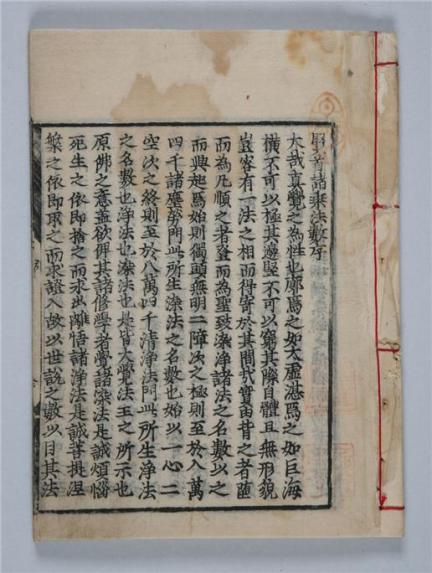 賢首諸乘法數序
大哉真覺之為性也廓焉之如太虛湛焉之如巨海
橫不可以極其邊竪不可以窮其際自體且無形貌
豈容有一法之相而得寄於其間哉實由背之者
而為凡順之者登而為聖致染淨諸法之名數以之
而興起焉始則獨頭無明二障次之極則至於八萬
四千諸塵勞門此所生染法之名數也始以一心二
空次之終則至於八萬四千清淨法門此所生淨法
之名數也淨法也染法也是皆大覺法王之所示也
原佛之意盖欲俾其諸修學者覺諸染法是誠煩惱
死生之依即捨之而求出離悟諸淨法是誠菩提涅
槃之依即取之而求證入故以世說之數以目其法